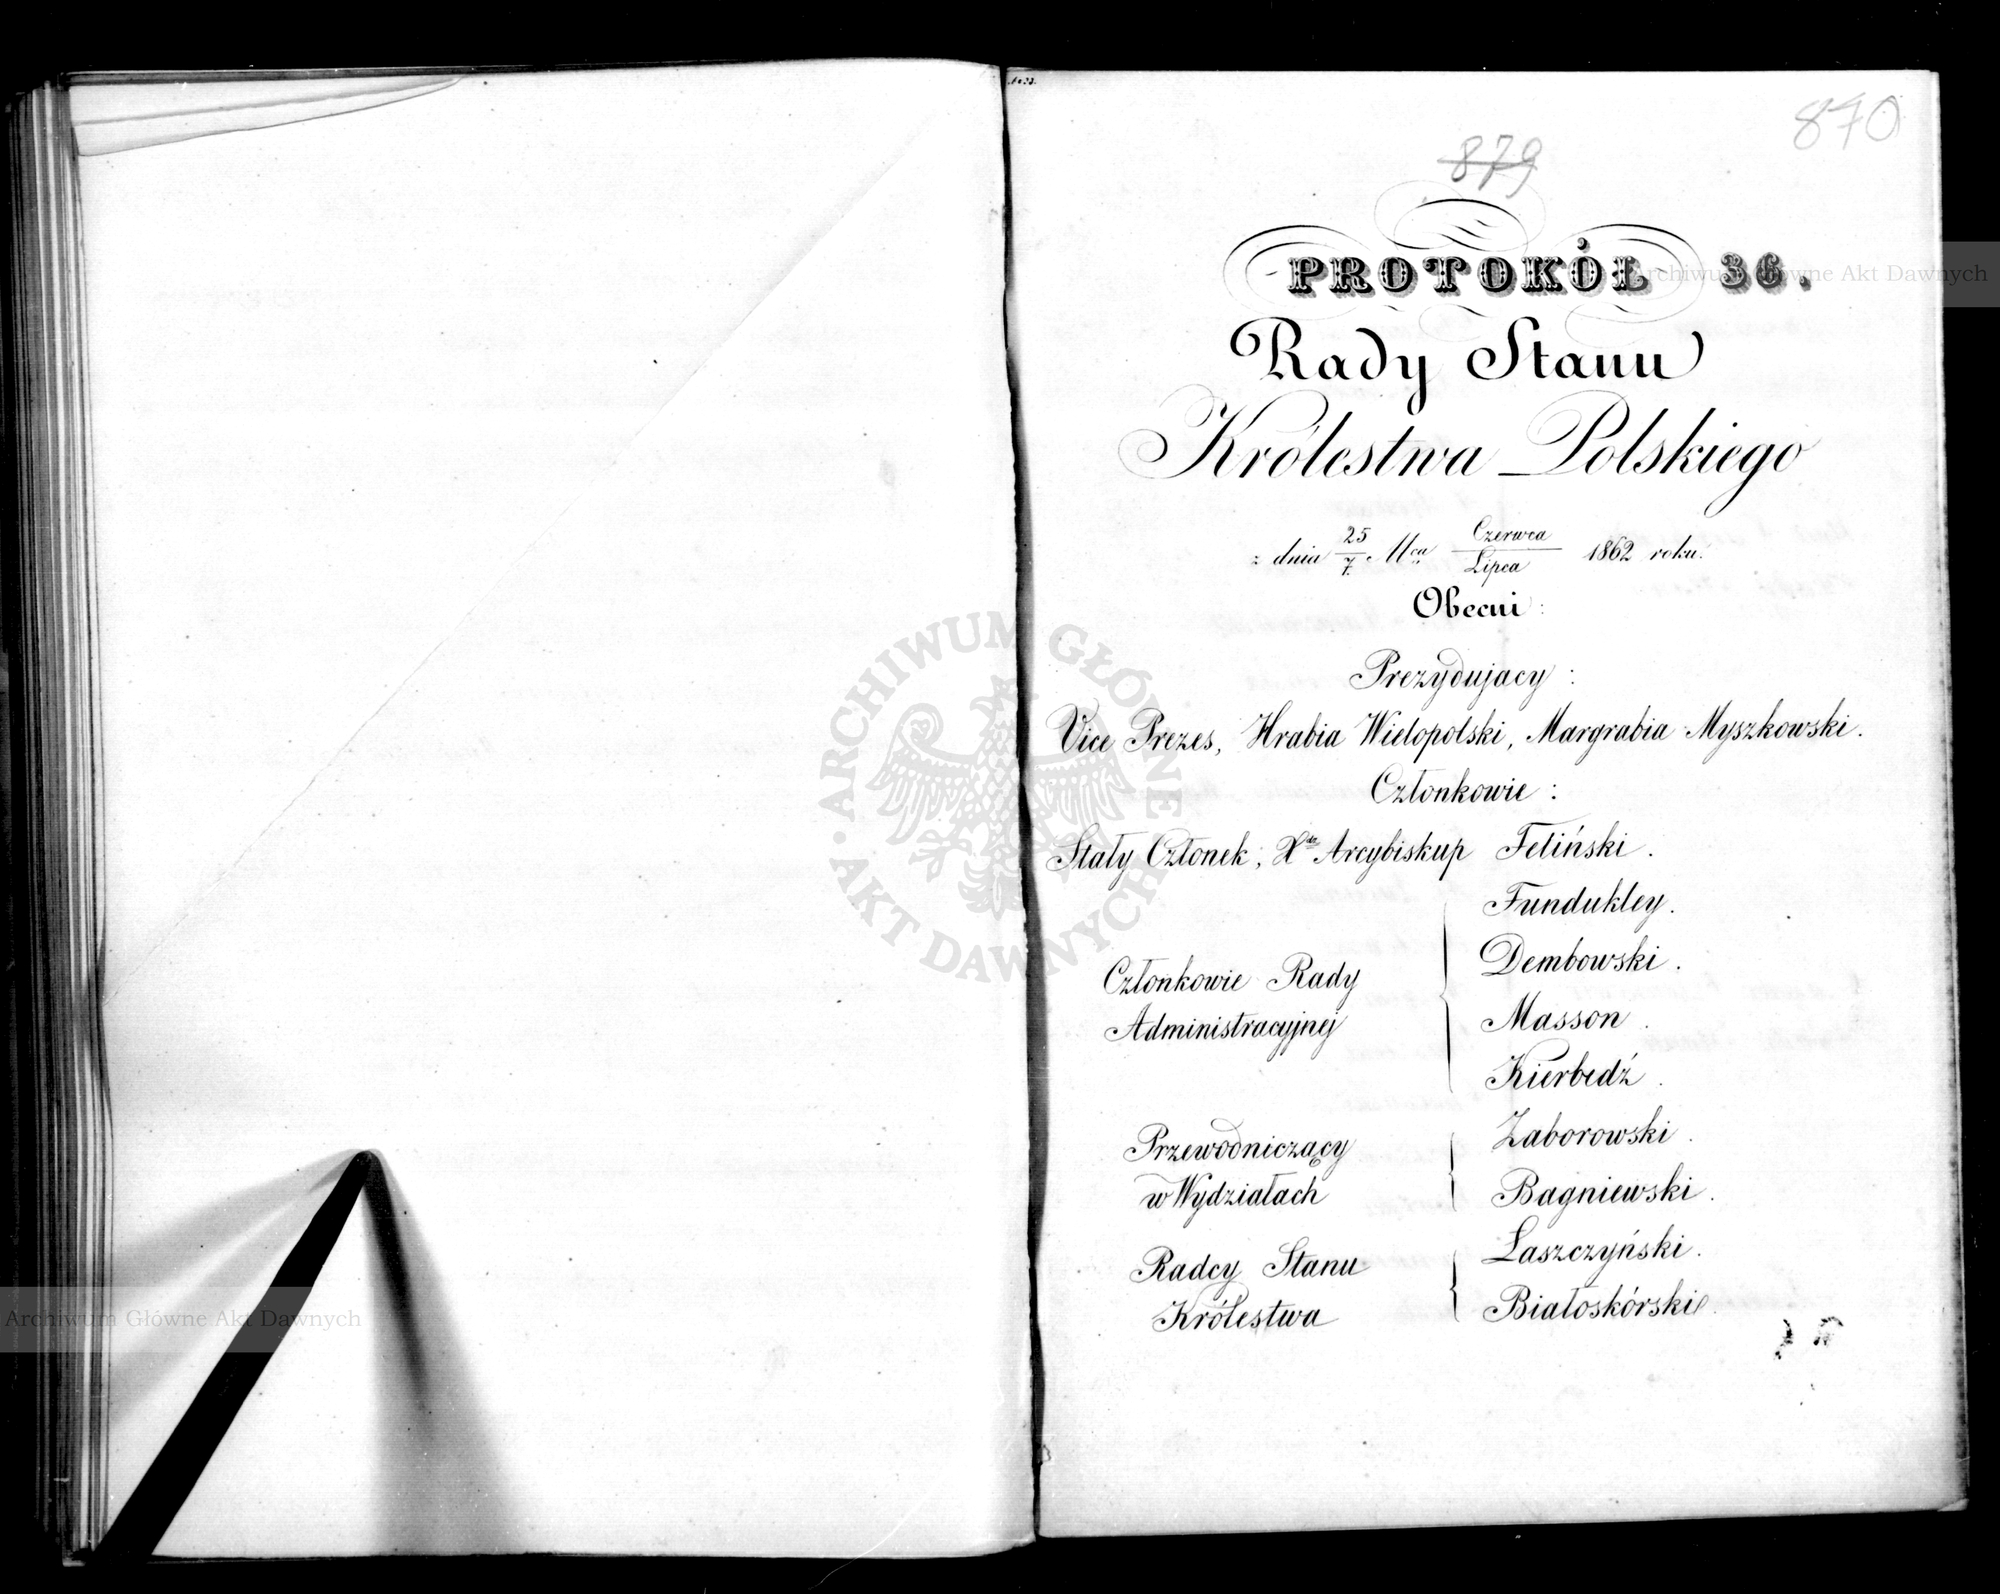 870
879
PROTOKÓŁ 36.
Rady Stanu
Królestwa Polskiego
z dnia 25/7. Mca Czerwca/Lipca 1862 roku.
Obecni:
Prezydujacy:
Vice Prezes, Hrabia Wielopolski, Margrabia Myszkowski.
Członkowie:
Stały Członek, Xdz Arcybiskup Feliński.
Fundukley.
Dembowski.
Członkowie Rady
Administracyjnej
Masson.
Kierbedź.
Przewodniczący
w Wydziałach
Zaborowski.
Bagniewski.
Radcy Stanu
Królestwa
Łaszczyński.
Białoskórski.
ARCHIWUM GŁÓWNE AKT DAWNYCH
Archiwum Główne Akt Dawnych
Archiwum Główne Akt Dawnych